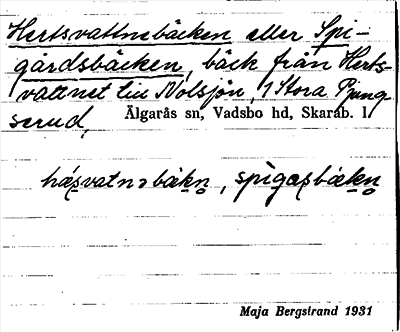 Hertsvattnebäcken eller Spi-
gårdsbäcken, bäck från Herts-
vattnet till Nolsjön, 1 Stora Bjung-
serud,
Älgarås sn, Vadsbo hd, Skarab. l
Maja Bergstrand 1931